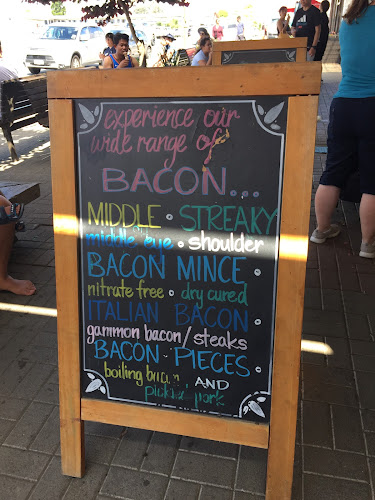 experience our
wide range of
BACON...
MIDDLE • STREAKY
middle eye • shoulder
BACON MINCE •
nitrate free • dry cured
ITALIAN BACON •
gammon bacon/steaks
BACON • PIECES •
boiling bacon AND
pickled pork